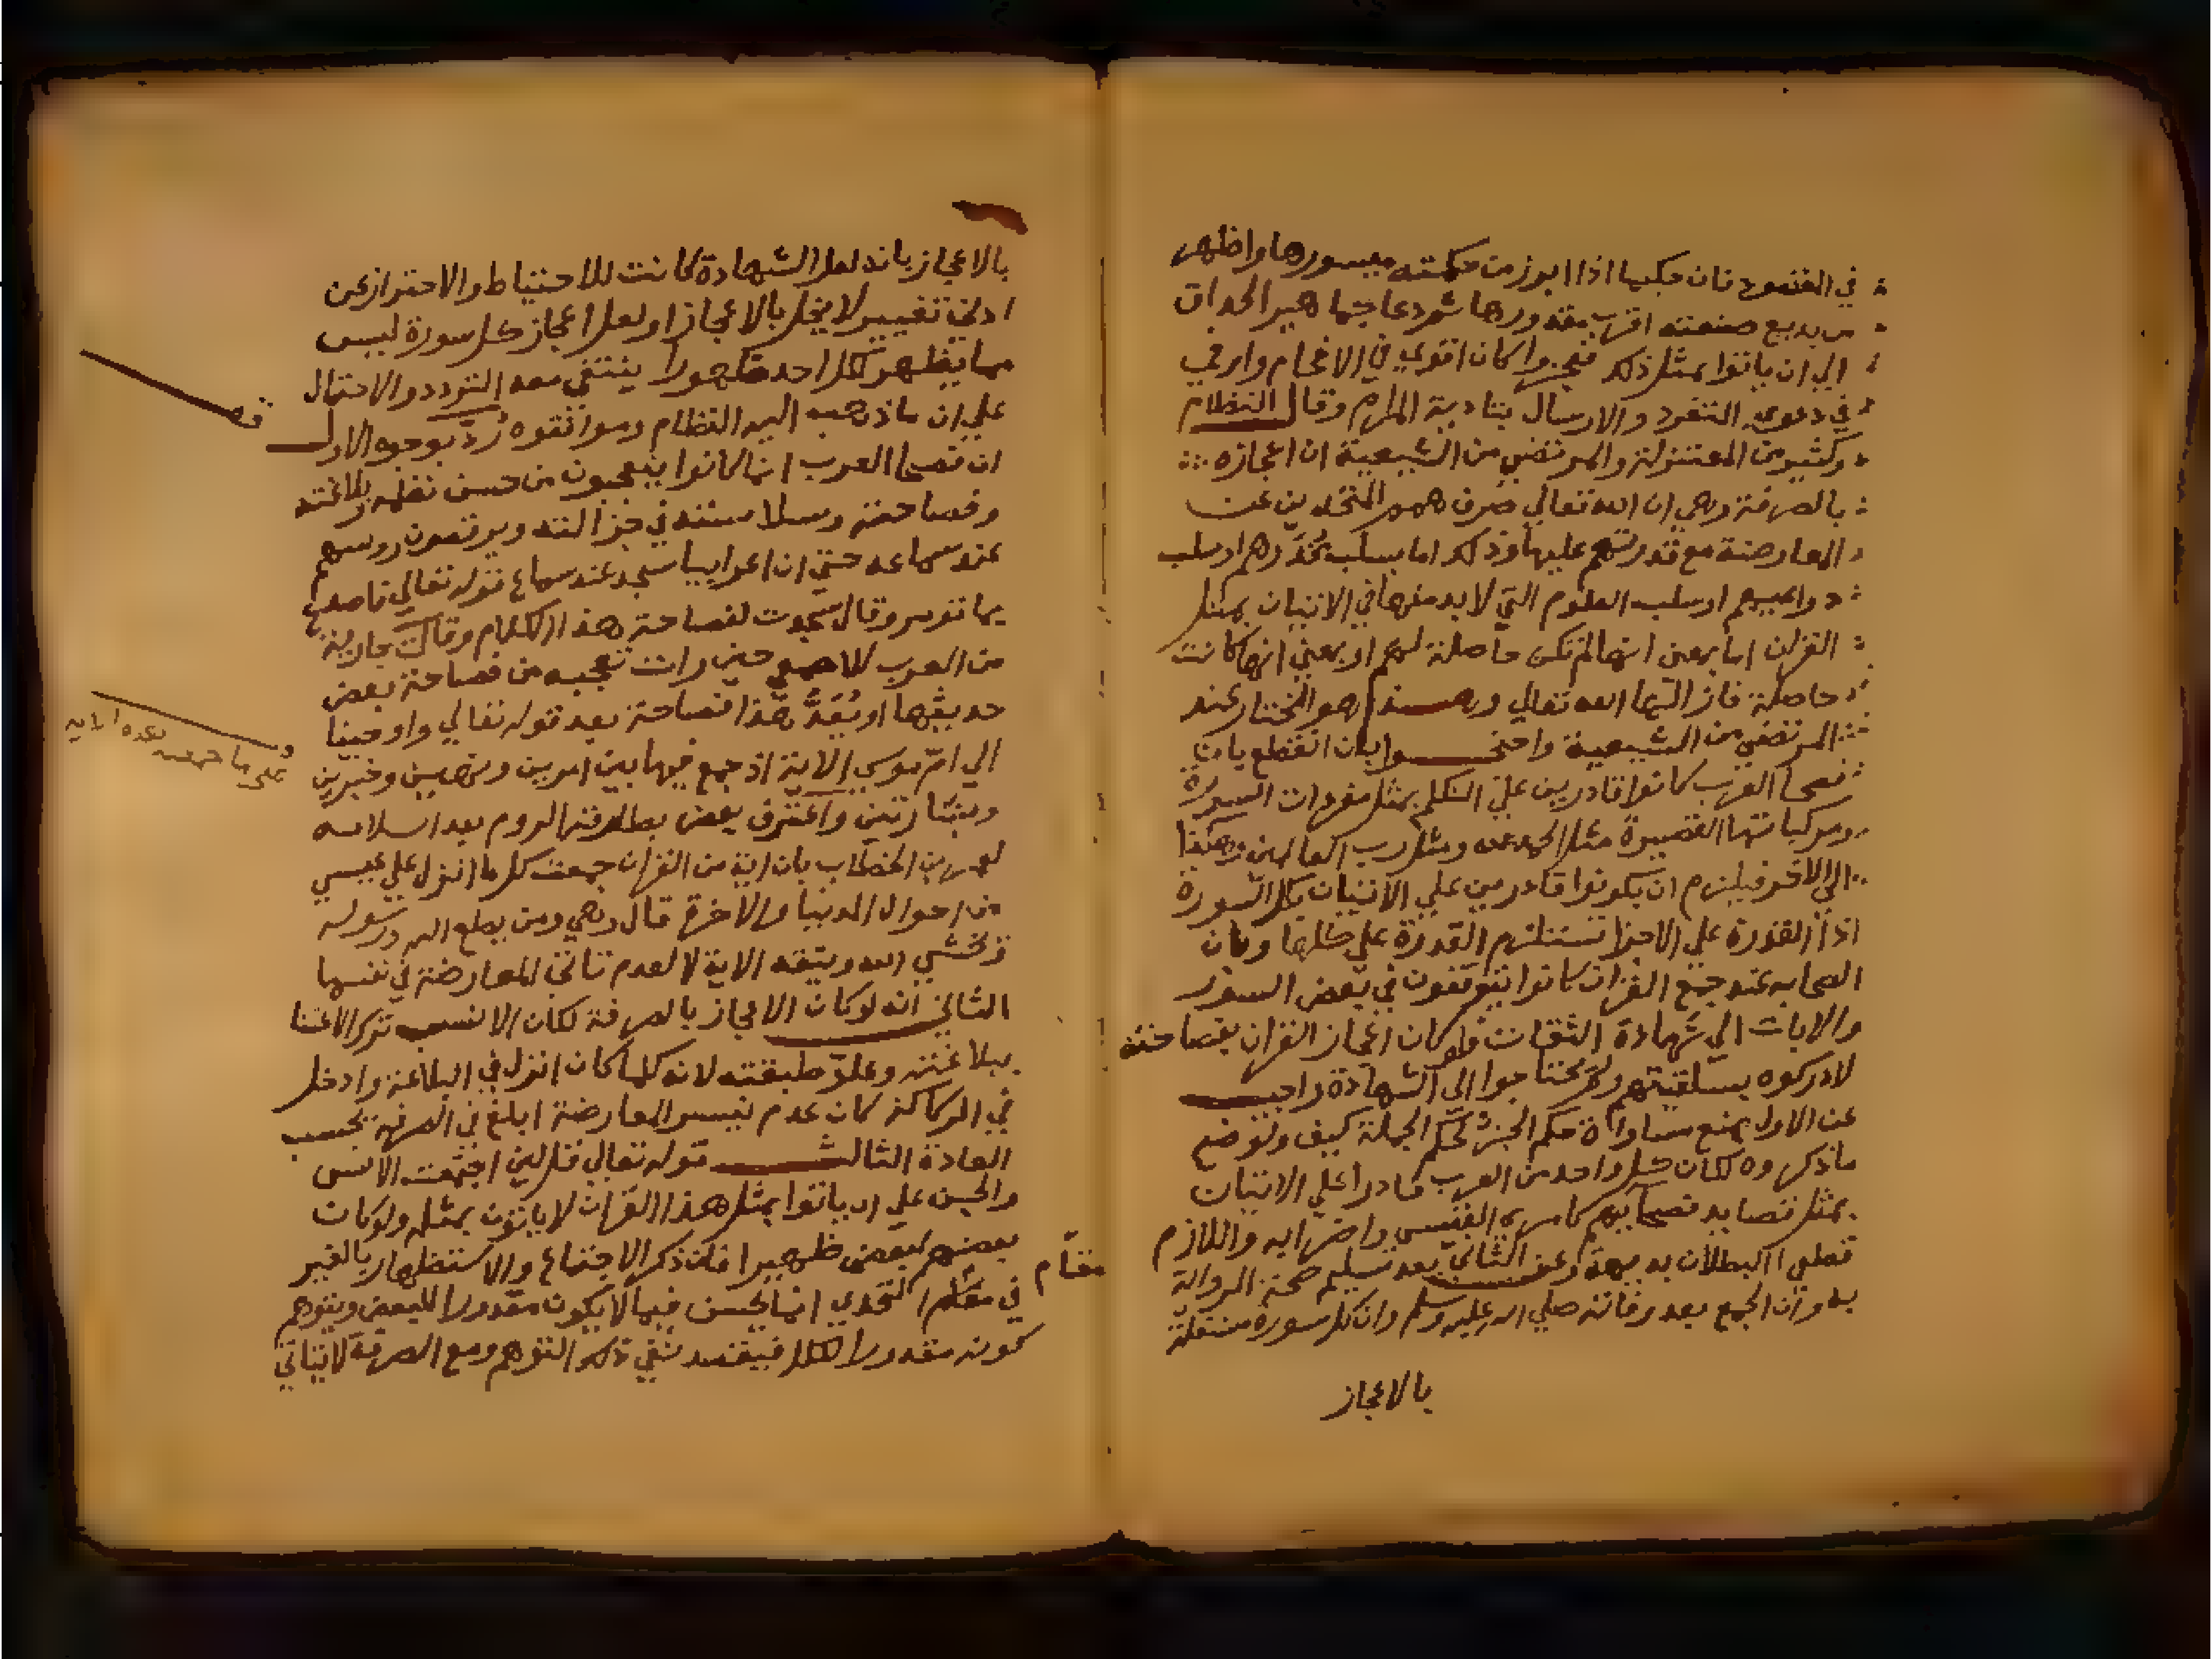 في الفتوح فان حكيما اذا ابرز من حكمته ميسورها واظهر
من بديع صنعته اقرب مقدورها ثم دعا جماهير الحذاق
الي ان ياتوا بمثل ذلك فعجزوا كان اقوي في الافحام وارفي
في دعوي التفرد والارسال بتادية المرام وقال النظام
وكثير من المعتزلة والمرتضي من الشيعية ان اعجازه
بالصرفة وهي ان الله تعالي صرف همم المتحدين عن
المعارضة مع قدرتهم عليها وذلك اما بسلب قُدَرهم او سلب
دواعيهم او سلب العلوم التي لا بد منها في الاتيان بمثل
القران اما بمعني انها لم تكن حاصلة لهم او بمعني انها كانت
حاصلة فازالها الله تعالي وهذا هو المختار عند
المرتضي من الشيعية واحتجوا بان انقطع بان
فصحا العرب كانوا قادرين علي التكلم بمثل مفردات السورة
ومركباتها القصيرة مثل الحمد لله ومثل رب العالمين وهكذا
الي الاخر فيلزم ان يكونوا قادرين علي الاتيان بكل السورة
اذا القدرة علي الاجزا تستلزم القدرة علي كلها وبان
الصحابه عند جمع القران كانوا يتوقفون في بعض السور
والايات الي شهادة الثقات فلو كان اعجاز القران بفصاحته
لادركوه بسليقتهم ولم يحتاجوا الي الشهادة واجيب
عن الاول بمنع مساواة حكم الجزء لحكم الجملة كيف ولو صح
ما ذكروه لكان كل واحد من العرب قادرا علي الاتيان
بمثل قصايد فصحايهم كامري القيس واضرابه واللازم
قطعي البطلان بديهة وعن الثاني بعد تسليم صحة الرواية
بدوران الجمع بعد وفاته صلي الله عليه وسلم وان كل سورة مستقلة
بالاعجاز
بالاعجاز بانه لعل الشهادة كانت للاحتياط والاحتراز عن
ادني تغيير لا يخل بالاعجاز او لعل اعجاز كل سورة ليس
مما يظهر لكل احد ظهورا ينتفي معه التردد والاحتمال
علي ان ما ذهب اليه النظام وموافقوه رُدّ بوجوه الاول
ان فصحا العرب انما كانوا يتعجبون من حسن نظمه وبلاغته
وفصاحته وسلاسته في جزالته ويرقصون روسهم
عند سماعه حتي ان اعرابيا سجد عند سماع قوله تعالي فاصدع
بما تومر وقال سجدت لفصاحة هذا الكلام وقالت جارية
من العرب للاصمعي حين رات تعجبه من فصاحة بعض
حديثها او يُعَدُّ هذا فصاحة بعد قوله تعالي واوحينا
الي امّ موسي الاية اذ جمع فيها بين امرين ونهيين وخبرين
وبشارتين واعترف بعض بطارقة الروم بعد اسلامه
لعمر بن الخطاب بان اية من القران جمعت كل ما انزل علي عيسي
من احوال الدنيا والاخرة قال وهي ومن يطع الله ورسوله
ويخشي الله ويتقه الاية لا لعدم تاتي المعارضة في نفسها
الثاني انه لو كان الاعجاز بالصرفة لكان الانسب ترك الاعتنا
ببلاغته وعلوّ طبقته لانه كلما كان انزل في البلاغة وادخل
في الركاكة كان عدم تيسر المعارضة ابلغ في الصرفه بحسب
العادة الثالث قوله تعالي قل لين اجتمعت الانس
والجن علي ان ياتوا بمثل هذا القران لا ياتون بمثله ولو كان
بعضهم لبعض ظهيرا فان ذكر الاجتماع والاستظهار بالغير
مقام
في مقام التحدي انما يحسن فيما لا يكون مقدورا للبعض ويتوهم
كونه مقدورا للكل فيقصد نفي ذلك التوهم ومع الصرفة لا يتاتي